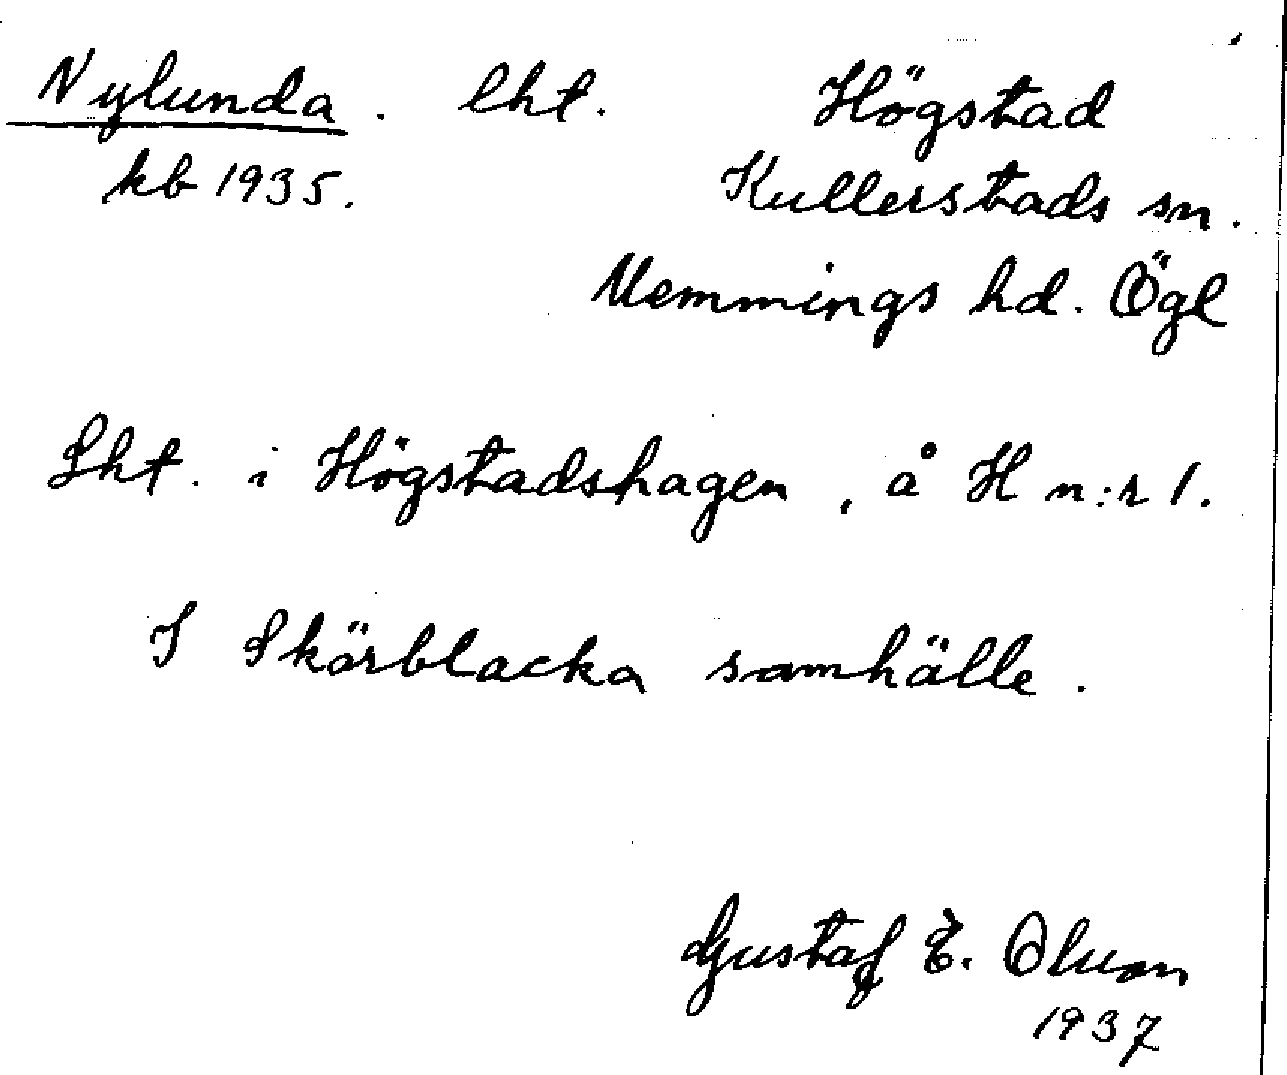 Nylunda. lht. Högstad
kb 1935. Kullerstads sn.
Memmings hd. Ögl
Lht. i Högstadshagen, å H n:r 1.
I Skärblacka samhälle.
Gustaf E. Olson
1937